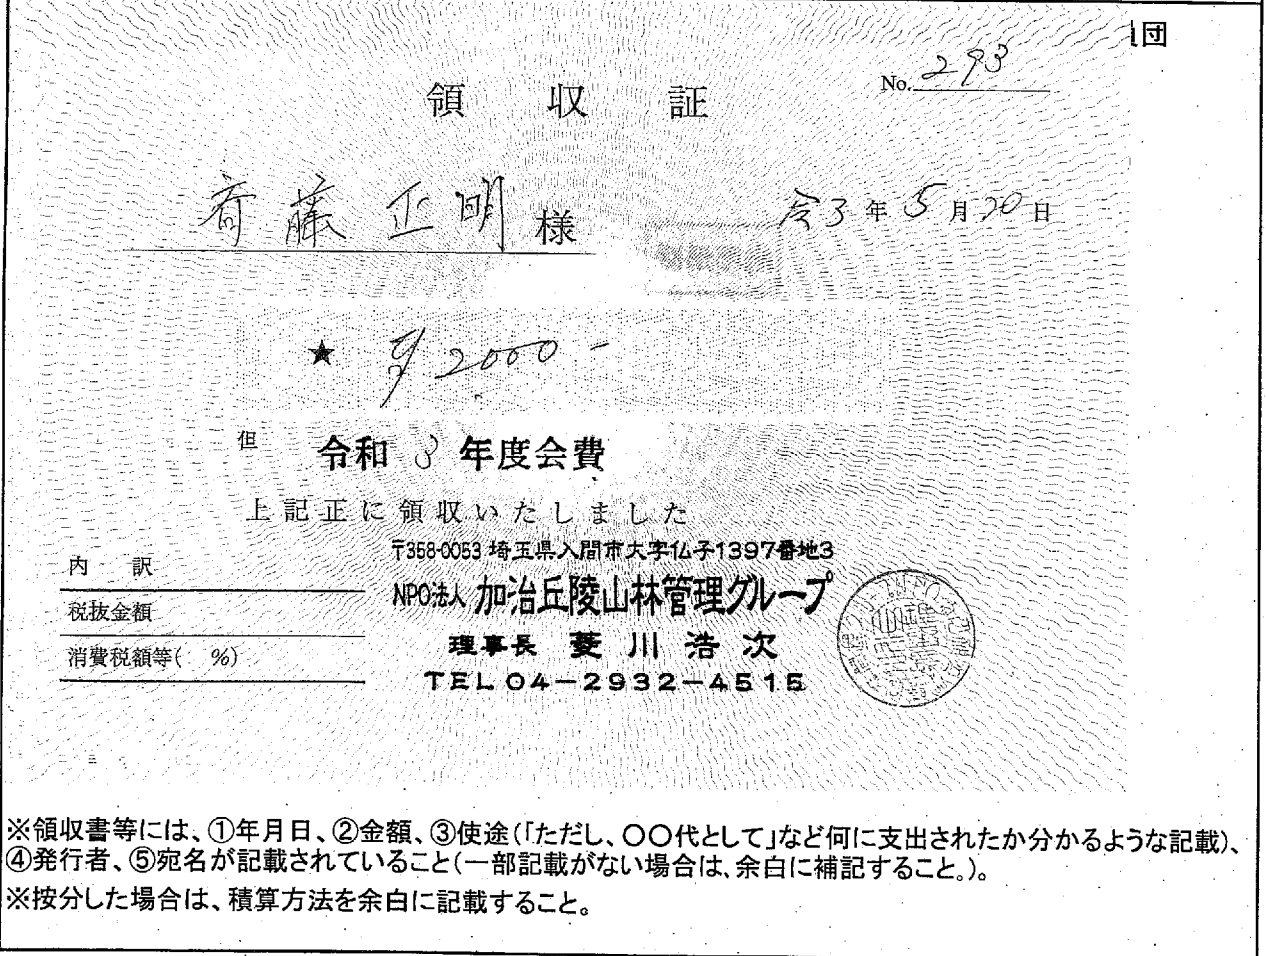 団
No. 293
領収証
斉藤正明様
令3年5月20日
★ ¥2000-
但 令和3年度会費
上記正に領収いたしました
内訳
税抜金額
消費税額等( %)
〒358-0053 埼玉県入間市大字仏子1397番地3
NPO法人 加治丘陵山林管理グループ
理事長 菱川浩次
TEL 04-2932-4515
※領収書等には、①年月日、②金額、③使途(「ただし、〇〇代として」など何に支出されたか分かるような記載)、
④発行者、⑤宛名が記載されていること(一部記載がない場合は、余白に補記すること。)。
※按分した場合は、積算方法を余白に記載すること。